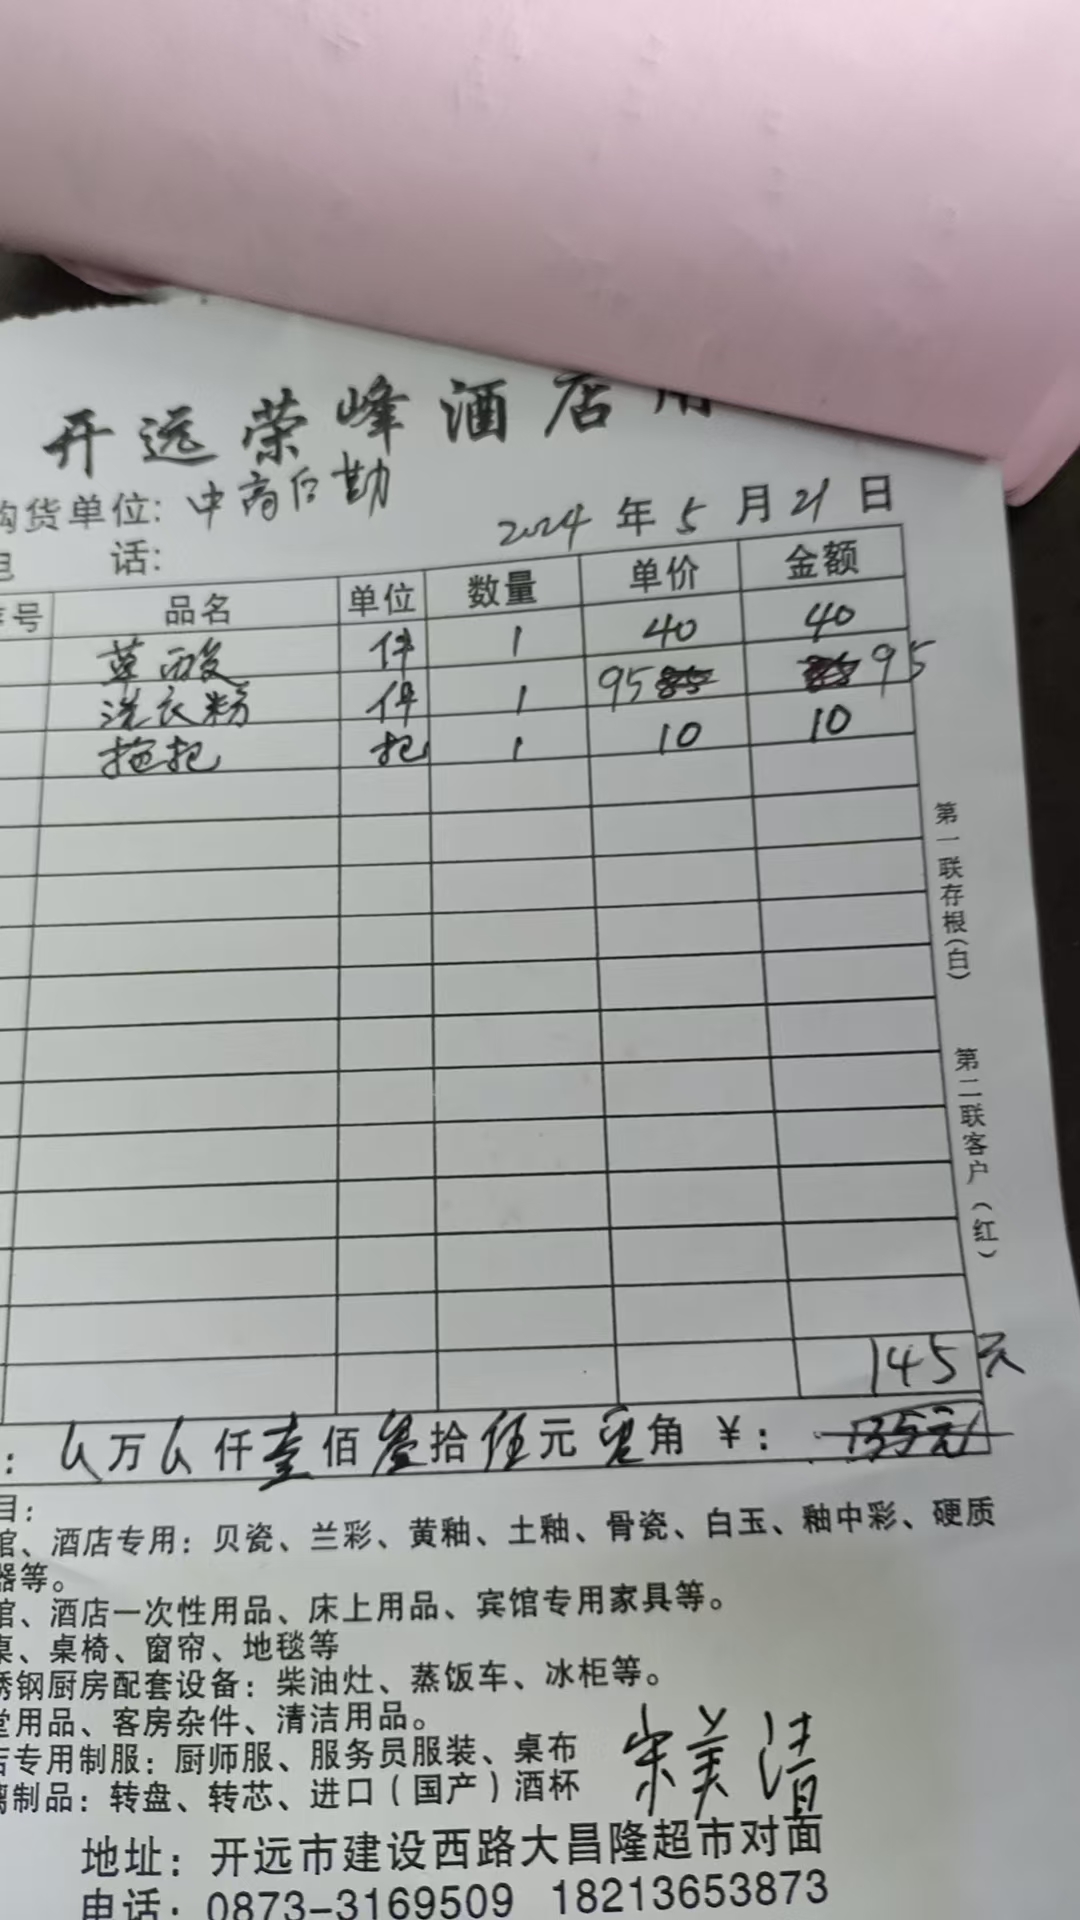 开远荣峰酒店用
购货单位: 中高后勤
2024 年 5 月 21 日
电 话:
序号 品名 单位 数量 单价 金额
草酸 件 1 40 40
洗衣粉 件 1 95 95
拖把 把 1 10 10
第一联存根(白) 第二联客户(红)
145元
: 万 仟壹佰叁拾伍元零角 ¥: 135元
目:
馆、酒店专用: 贝瓷、兰彩、黄釉、土釉、骨瓷、白玉、釉中彩、硬质
器等。
馆、酒店一次性用品、床上用品、宾馆专用家具等。
桌、桌椅、窗帘、地毯等
锈钢厨房配套设备: 柴油灶、蒸饭车、冰柜等。
堂用品、客房杂件、清洁用品。
店专用制服: 厨师服、服务员服装、桌布
璃制品: 转盘、转芯、进口(国产)酒杯
宋美清
地址: 开远市建设西路大昌隆超市对面
电话: 0873-3169509 18213653873